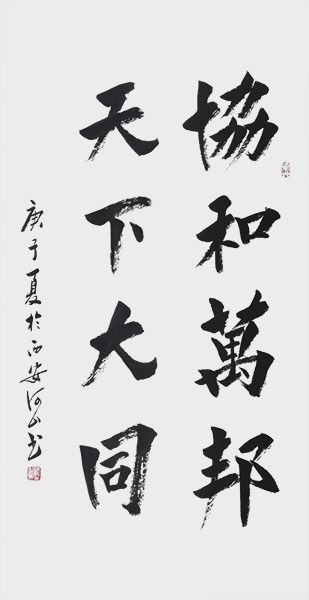 協和萬邦
天下大同
庚子夏於西安河山书